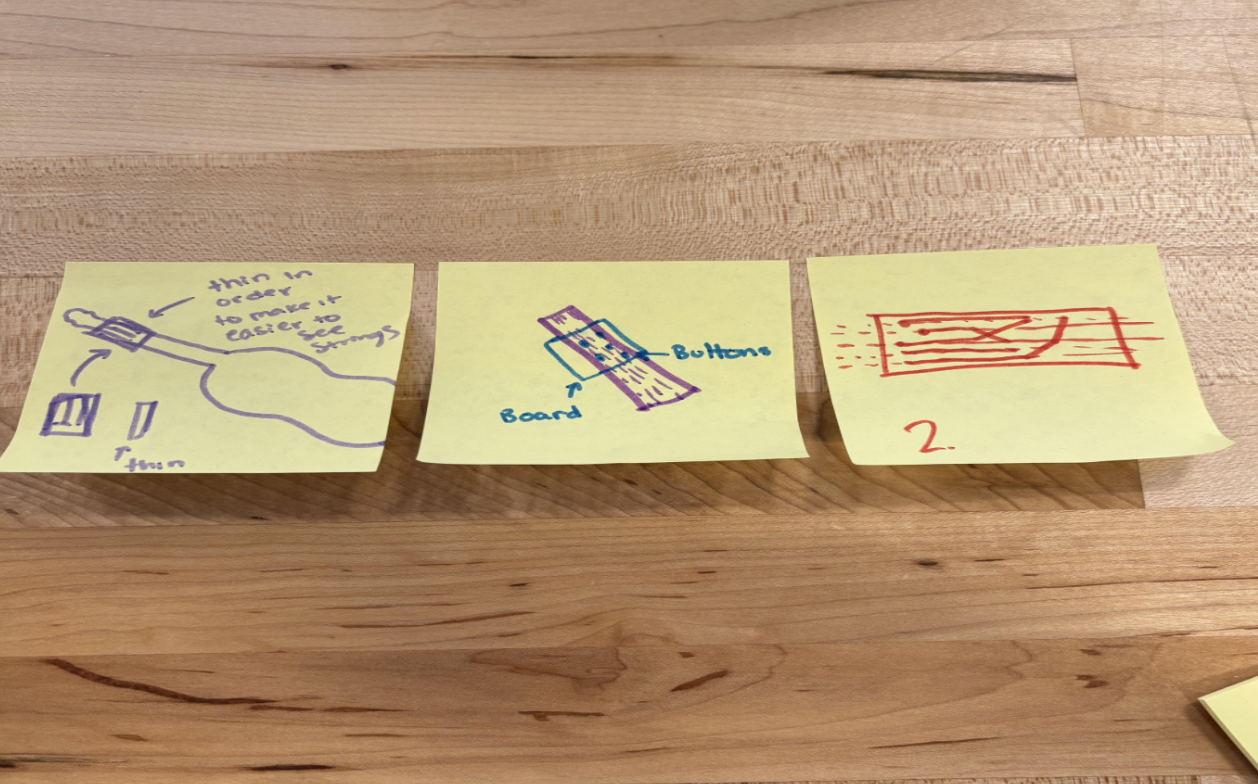 thin in
order
to make it
easier to
see
strings
thin
Buttons
Board
2.